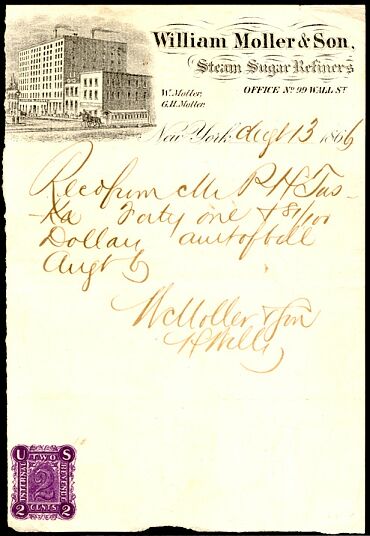 William Moller & Son,
Steam Sugar Refiners
W. Moller,
G.H. Moller.
OFFICE No 99 WALL ST
New York Augt 13 1866
Recd from Mr P H Tus-
-ka Forty one & 81/100
Dollars amt of bill
Augt 6
Wm Moller & Son
H Wells
U S
INTERNAL TWO REVENUE
2
2 CENTS 2